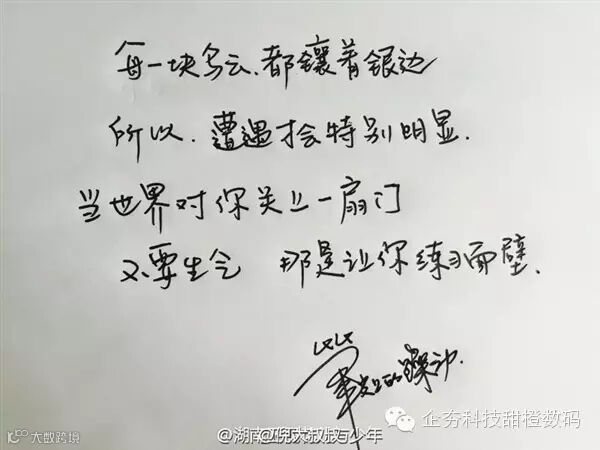 每一块乌云、都镶着银边
所以、遭遇才会特别明显.
当世界对你关上一扇门
不要生气 那是让你练习面壁.
的躁动.
大数跨境
企夯科技甜橙数码